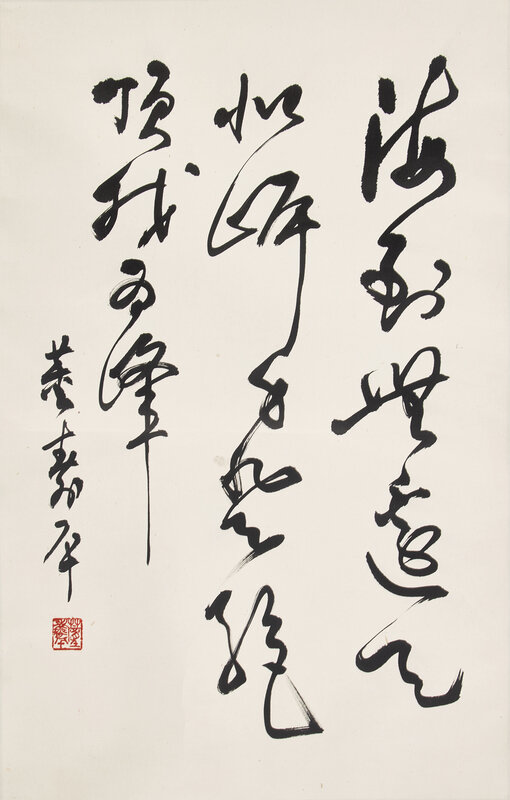 海到無邊天
似岸登絕
頂我為峰
董壽平